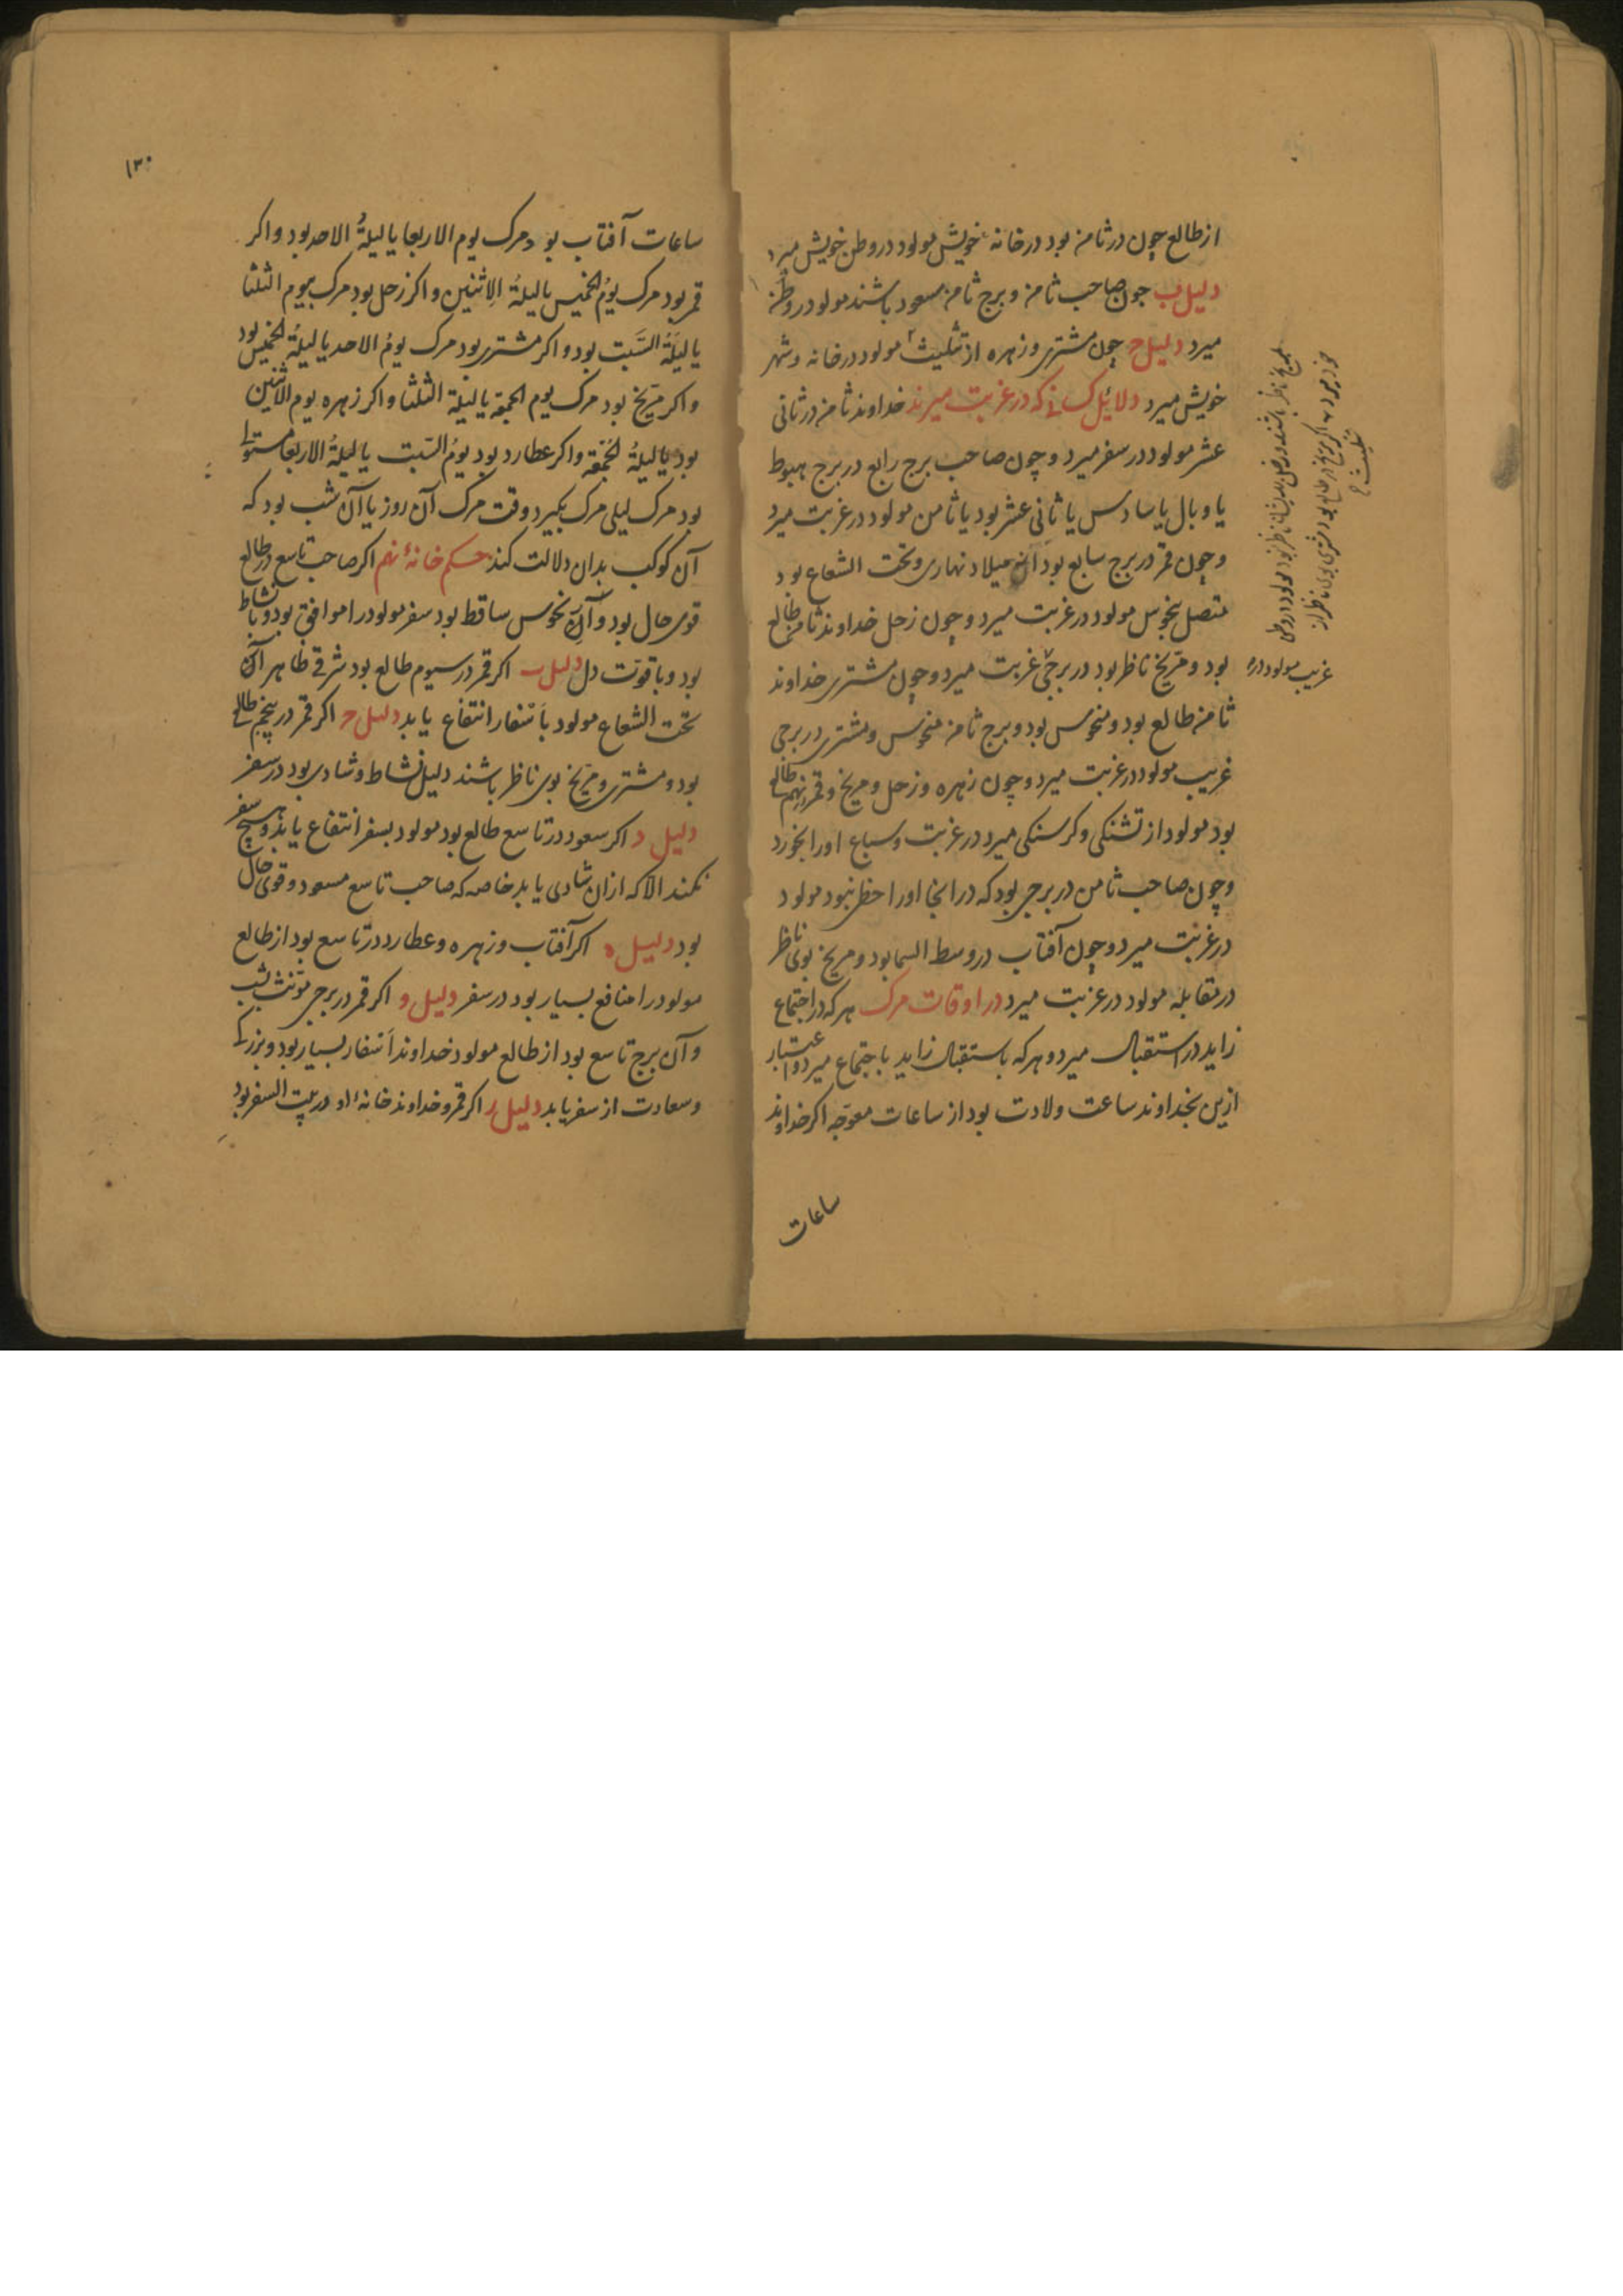 از طالع چون در ثامن بود در خانه خویش مولود در وطن خویش میرد
دلیل ب چون صاحب ثامن و برج ثامن مسعود باشند مولود در وطن
میرد دلیل ج چون مشتری و زهره از تثلیث مولود در خانه و شهر
خویش میرد دلائل کسانی که در غربت میرند خداوند ثامن در ثانی
عشر مولود در سفر میرد و چون صاحب برج رابع در برج هبوط
یا وبال یا سادس یا ثانی عشر بود یا ثامن مولود در غربت میرد
و چون قمر در برج سابع بود میلاد نهاری و تحت الشعاع بود
متصل بنحوس مولود در غربت میرد و چون زحل خداوند ثامن طالع
بود و مریخ ناظر بود در برجی غربت میرد و چون مشتری خداوند
ثامن طالع بود و منحوس بود و برج ثامن منحوس و مشتری در برجی
غریب مولود در غربت میرد و چون زهره و زحل و مریخ و قمر نهم طالع
بود مولود از تشنکی و کرسنکی میرد در غربت و سباع اورا بخورد
و چون صاحب ثامن در برجی بود که در انجا اورا حظ نبود مولود
در غربت میرد و چون آفتاب در وسط السما بود و مریخ بوی ناظر
در مقابله مولود در غربت میرد در اوقات مرک هر که در اجتماع
زاید در استقبال میرد و هر که باستقبال زاید باجتماع میرد و اعتبار
ازین بخداوند ساعت ولادت بود از ساعات معوجه اکر خداوند
ساعات
غریب مولود در
۱۳۰
ساعات آفتاب بود مرک یوم الاربعا یا لیلة الاحد بود و اکر
قمر بود مرک یوم الخمیس یا لیلة الاثنین و اکر زحل بود مرک بیوم الثلثا
یا لیلة السبت بود و اکر مشتری بود مرک یوم الاحد یا لیلة الخمیس بود
و اکر مریخ بود مرک یوم الجمعة یا لیلة الثلثا و اکر زهره یوم الاثنین
بود یا لیلة الجمعة و اکر عطارد بود یوم السبت یا لیلة الاربعا
بود مرک لیلی مرک بکیرد وقت مرک آن روز یا آن شب بود که
آن کوکب بدان دلالت کند حکم خانهٔ نهم اکر صاحب تاسع در طالع
قوی حال بود و از نحوس ساقط بود سفر مولود را موافق بود و بانشاط
بود و با قوت دل دلیل ب اکر قمر در سیوم طالع بود شرقی ظاهر از
تحت الشعاع مولود باسفار انتفاع یابد دلیل ج اکر قمر در پنجم طالع
بود و مشتری و مریخ بوی ناظر باشند دلیل نشاط و شادی بود در سفر
دلیل د اکر سعود در تاسع طالع بود مولود بسفر انتفاع یابد و هیچ سفر
نکند الا که ازان شادی یابد خاصه که صاحب تاسع مسعود و قوی حال
بود دلیل ه اکر آفتاب و زهره و عطارد در تاسع بود از طالع
مولود را منافع بسیار بود در سفر دلیل و اکر قمر در برجی مونث بشب
و آن برج تاسع بود از طالع مولود خداوند اسفار بسیار بود و بزرکی
و سعادت از سفر یابد دلیل ز اکر قمر و خداوند خانهٔ او در بیت السفر بود